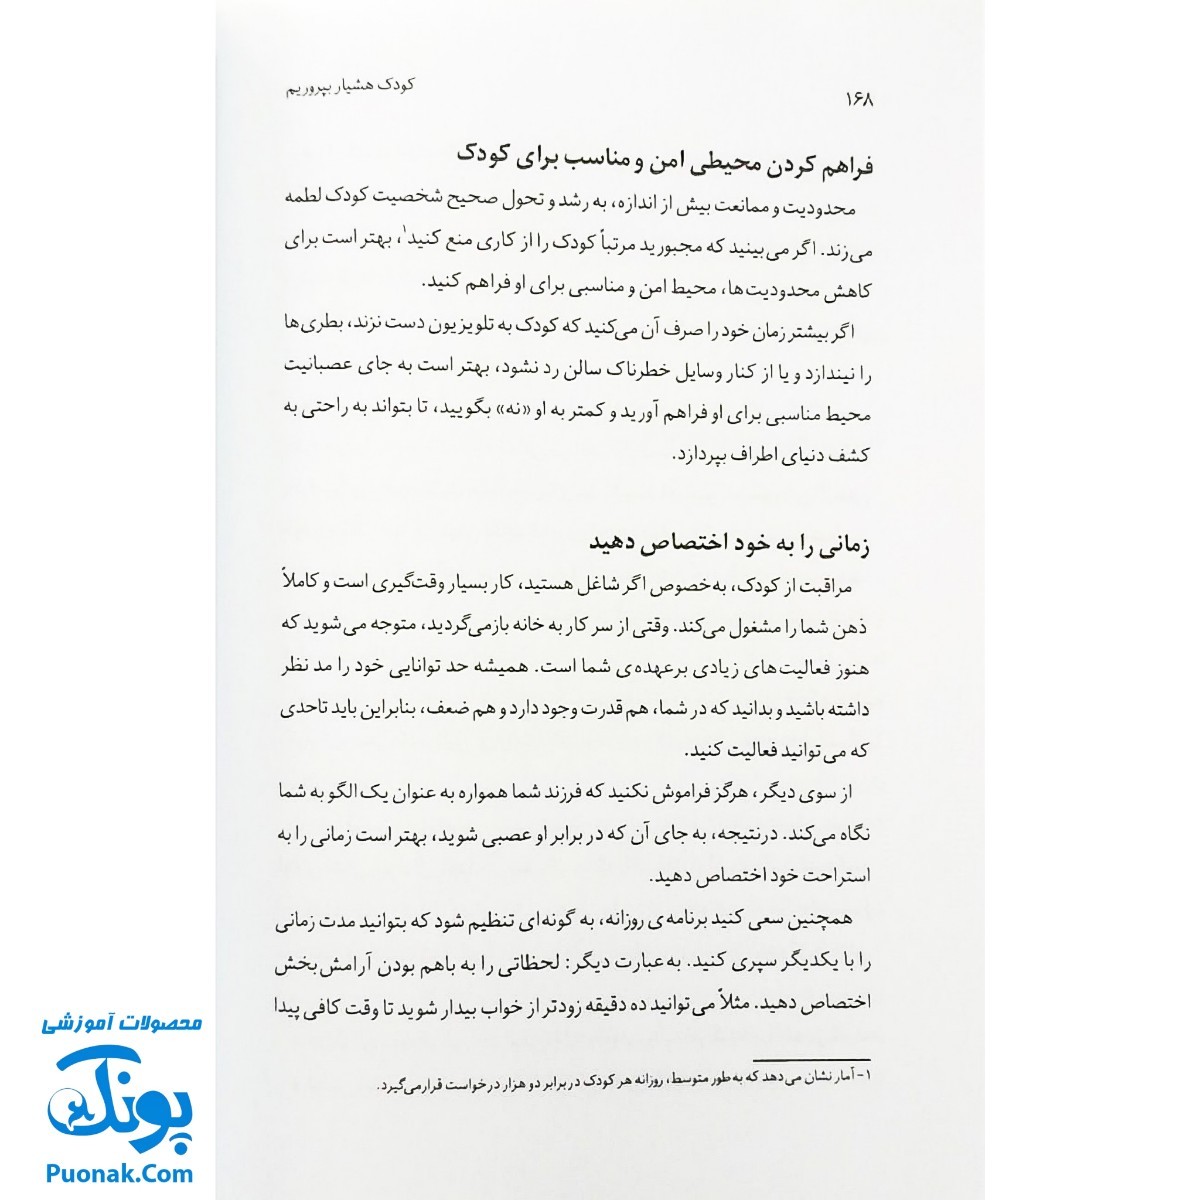 ۱۶۸
کودک هشیار بپروریم
فراهم کردن محیطی امن و مناسب برای کودک
محدودیت و ممانعت بیش از اندازه، به رشد و تحول صحیح شخصیت کودک لطمه
می‌زند. اگر می‌بینید که مجبورید مرتباً کودک را از کاری منع کنید۱، بهتر است برای
کاهش محدودیت‌ها، محیط امن و مناسبی برای او فراهم کنید.
اگر بیشتر زمان خود را صرف آن می‌کنید که کودک به تلویزیون دست نزند، بطری‌ها
را نیندازد و یا از کنار وسایل خطرناک سالن رد نشود، بهتر است به جای عصبانیت
محیط مناسبی برای او فراهم آورید و کمتر به او «نه» بگویید، تا بتواند به راحتی به
کشف دنیای اطراف بپردازد.
زمانی را به خود اختصاص دهید
مراقبت از کودک، به‌خصوص اگر شاغل هستید، کار بسیار وقت‌گیری است و کاملاً
ذهن شما را مشغول می‌کند. وقتی از سر کار به خانه بازمی‌گردید، متوجه می‌شوید که
هنوز فعالیت‌های زیادی برعهده‌ی شما است. همیشه حد توانایی خود را مد نظر
داشته باشید و بدانید که در شما، هم قدرت وجود دارد و هم ضعف، بنابراین باید تاحدی
که می‌توانید فعالیت کنید.
از سوی دیگر، هرگز فراموش نکنید که فرزند شما همواره به عنوان یک الگو به شما
نگاه می‌کند. درنتیجه، به جای آن که در برابر او عصبی شوید، بهتر است زمانی را به
استراحت خود اختصاص دهید.
همچنین سعی کنید برنامه‌ی روزانه، به گونه‌ای تنظیم شود که بتوانید مدت زمانی
را با یکدیگر سپری کنید. به‌عبارت دیگر: لحظاتی را به باهم بودن آرامش‌بخش
اختصاص دهید. مثلاً می‌توانید ده دقیقه زودتر از خواب بیدار شوید تا وقت کافی پیدا
۱- آمار نشان می‌دهد که به‌طور متوسط، روزانه هر کودک در برابر دو هزار درخواست قرار می‌گیرد.
محصولات آموزشی
پونک
Puonak.Com